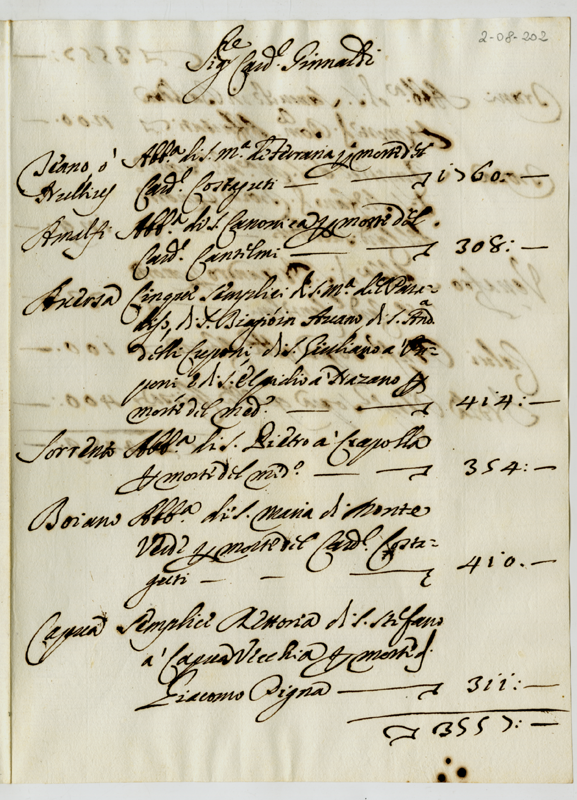 2-08-202
Sig.re Card.l Grimaldi
Teano, ò Abb.a di S. M.a di Ferrara p morte del
Nullius Card.l Costaguti — 1760: —
Amalfi Abb.a di S. Canonica p morte del
Card.l Cantelmi — 308: —
Aversa Cinque semplici di S. M.a del Para-
diso, di S. Biaggio in Arzano di S. And.a
delli Cuponi, di S. Giuliano à
poni e di S. Elgidio à Nazano p
morte del med.o — 414: —
Sorrento Abb.a di S. Pietro à Crapolla
p morte del med.o — 354: —
Boiano Abb.a di S. Maria di Monte
Verde p morte del Card.l Costa-
guti — 410: —
Capua Semplice Rettoria di S. Stefano
à Capua Vecchia p morte di
Giacomo Pigna — 311: —
3557: —